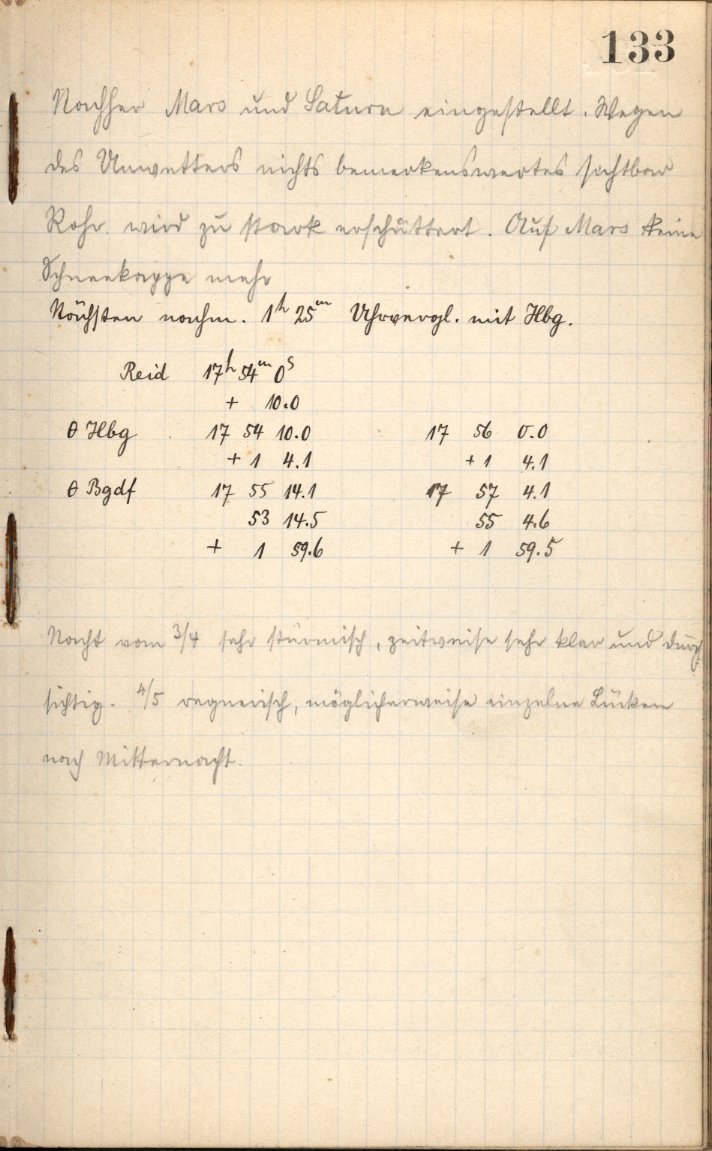 133
Nachher Mars und Saturn eingestellt. Wegen
des Unwetters nichts bemerkenswertes sichtbar
Rohr wird zu stark erschüttert. Auf Mars keine
Schneekappe mehr
Nächsten nachm. 1h 25m Uhrvergl. mit Hbg.
Reid 17h 54m 0s
+ 10.0
θ Hbg 17 54 10.0 17 56 0.0
+ 1 4.1 + 1 4.1
θ Bgdf 17 55 14.1 17 57 4.1
53 14.5 55 4.6
+ 1 59.6 + 1 59.5
Nacht vom 3/4 sehr stürmisch, zeitweise sehr klar und durch-
sichtig. 4/5 regnerisch, möglicherweise einzelne Lücken
nach Mitternacht.